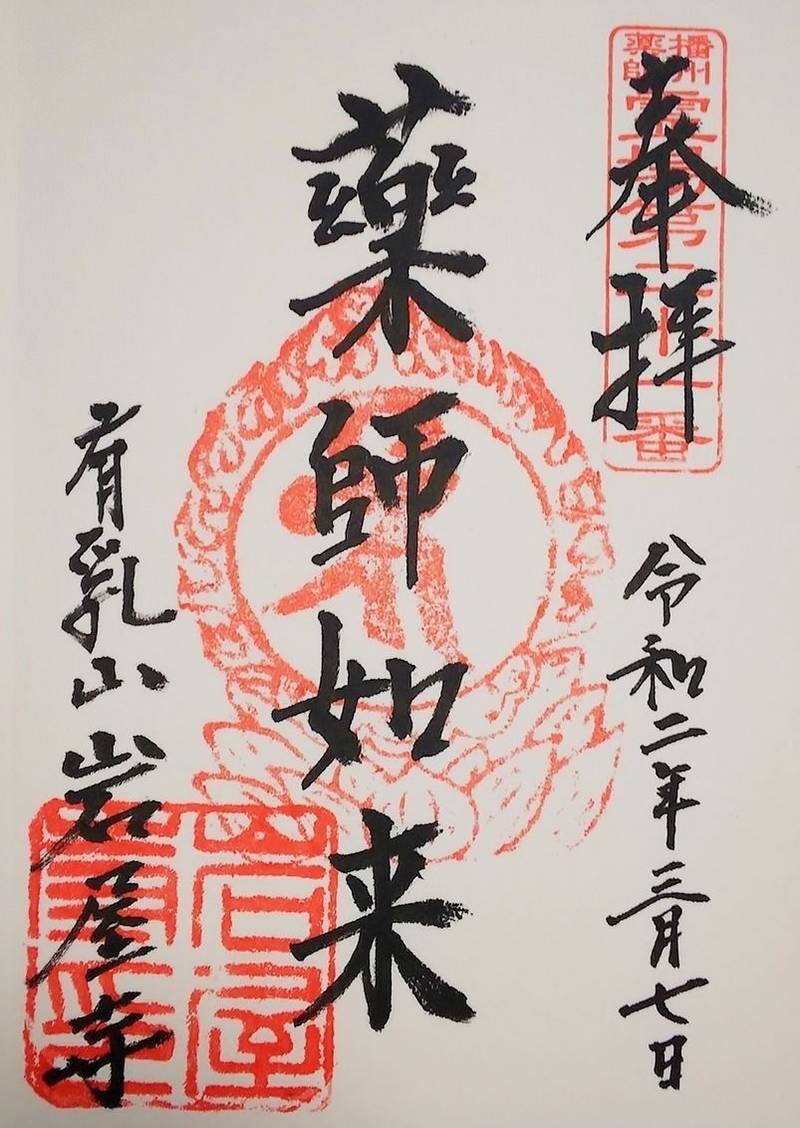 播州
薬師
霊場第二十一番
奉拝
令和二年三月七日
藥師如来
有乳山岩屋寺
岩屋
寺印